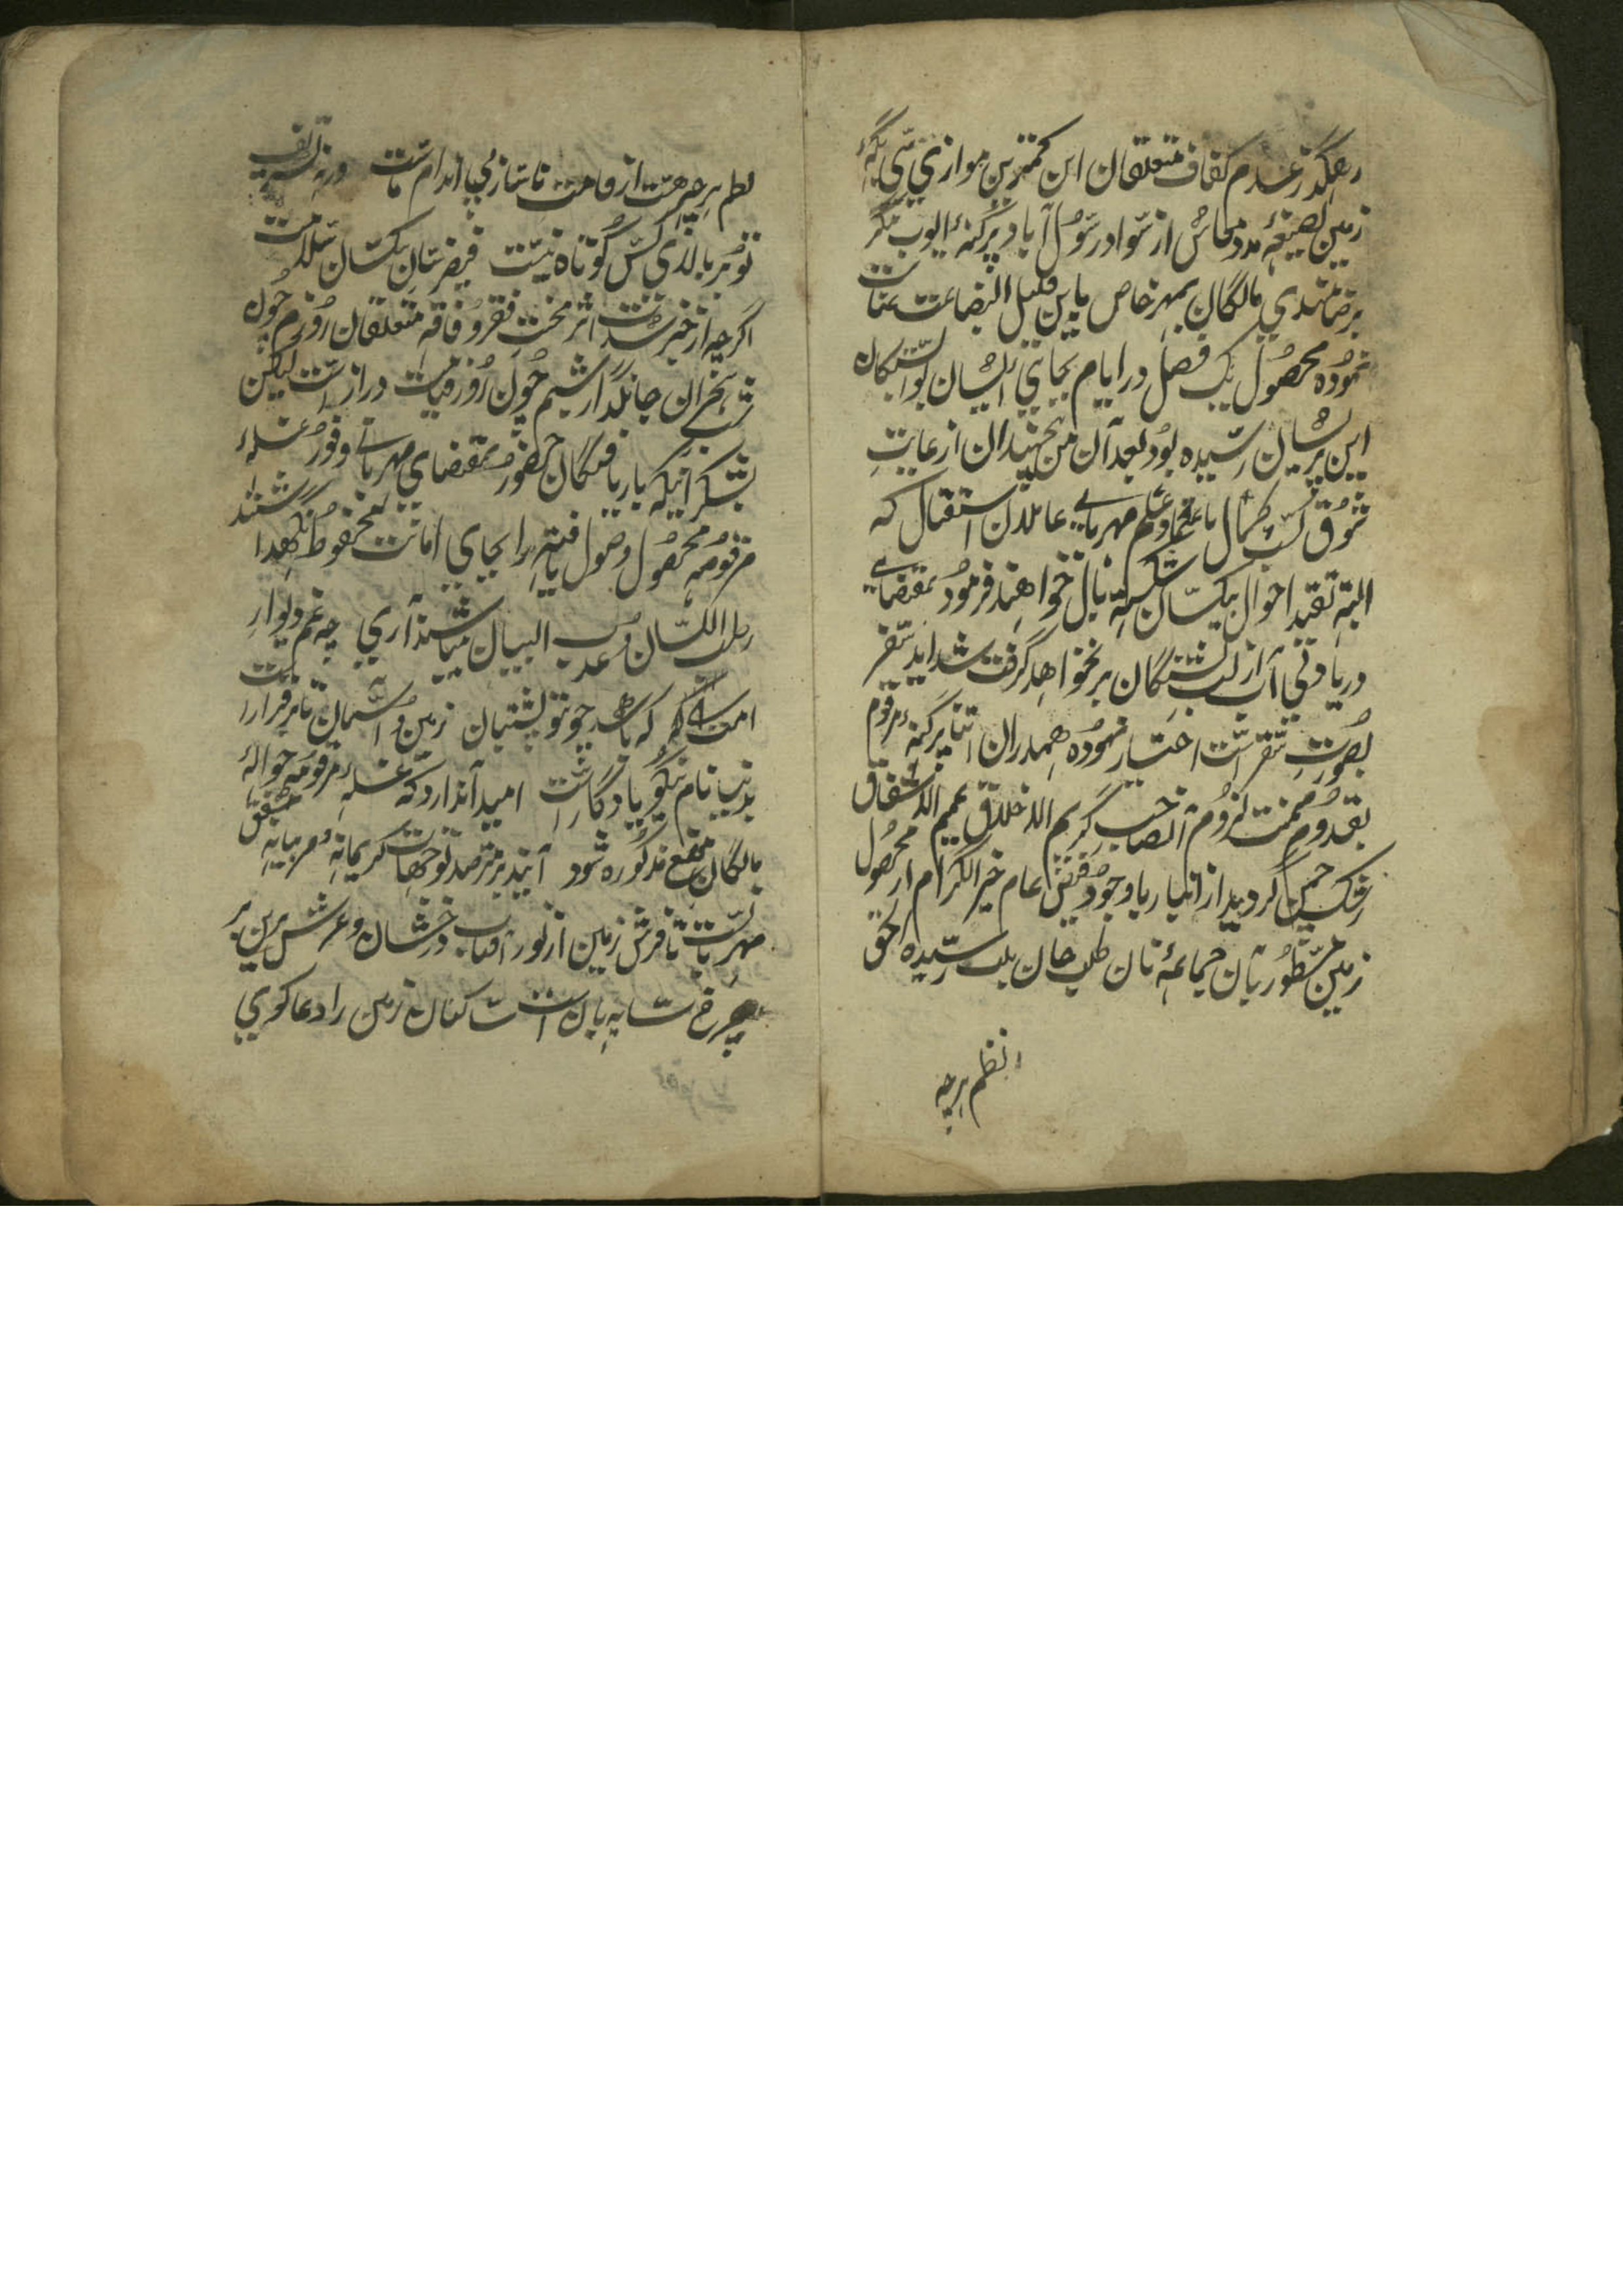 رهگذر عدم کفاف متعلقان این کمترین موازی سی بیگه
زمین بصیغه مدد معاش از سواد رسول آباد پرگنه ایوب نگر
برضامندی مالکان بمهر خاص باین قلیل البضاعت عنایت
نموده محصول یک فصل در ایام بجای ایشان بوابستکان
این پریشان رسیده بود بعد آن من هیچندان از غایت
شوق کسب کمال باعتماد مهربانی عاملان استقبال که
البته تفقد احوال بیکسان شکسته بال خواهند فرمود بمقتضای
دریا دلی آب از لب تشنگان بر نخواهد گرفت شداید سفر
بصورت سقر است اختیار نموده همدران اثنا پرگنه مرقوم
بقدوم میمنت لزوم آنصاحب کریم الاخلاق عمیم الاشفاق
رشک چمن گردید از انبار با وجود فیض عام خیر الکرام از محصول
زمین مسطور بآن جماعه نان طلب جان بلب رسیده الحق
نظم هرچه
نظم هرچه هست از قامت ناساز بی اندام ماست ورنه تشریف
تو بر بالای کس کوتاه نیست فیض رسان بیکسان سلامت
اگرچه از خبر شدت اثر محنت فقر و فاقه متعلقان روزم چون
شب هجران جانگداز شبم چون روز قیامت دراز است لیکن
بشکر اینکه باریافتگان حضور بمقتضای مهربانی وفور غله
مرقومه محصول وصول یافته را بجای امانت محفوظ نگهداشتند
رطب اللسان و عذب البیان میباشد آری چه غم دیوار
امت را که باشد چو تو پشتیبان زمین و آسمان تا برقرار است
بدنیا نام نیکو یادگار است امید آندارد که غله مرقومه حواله
مالکان موضع مذکوره شود آینده مترصد توجهات کریمانه و مربیانه مشفق
مهربانست تا فرش زمین از نور آفتاب درخشان و عرش برین بر
چرخ سایه بان است ساکنان زمین را دعا گوی